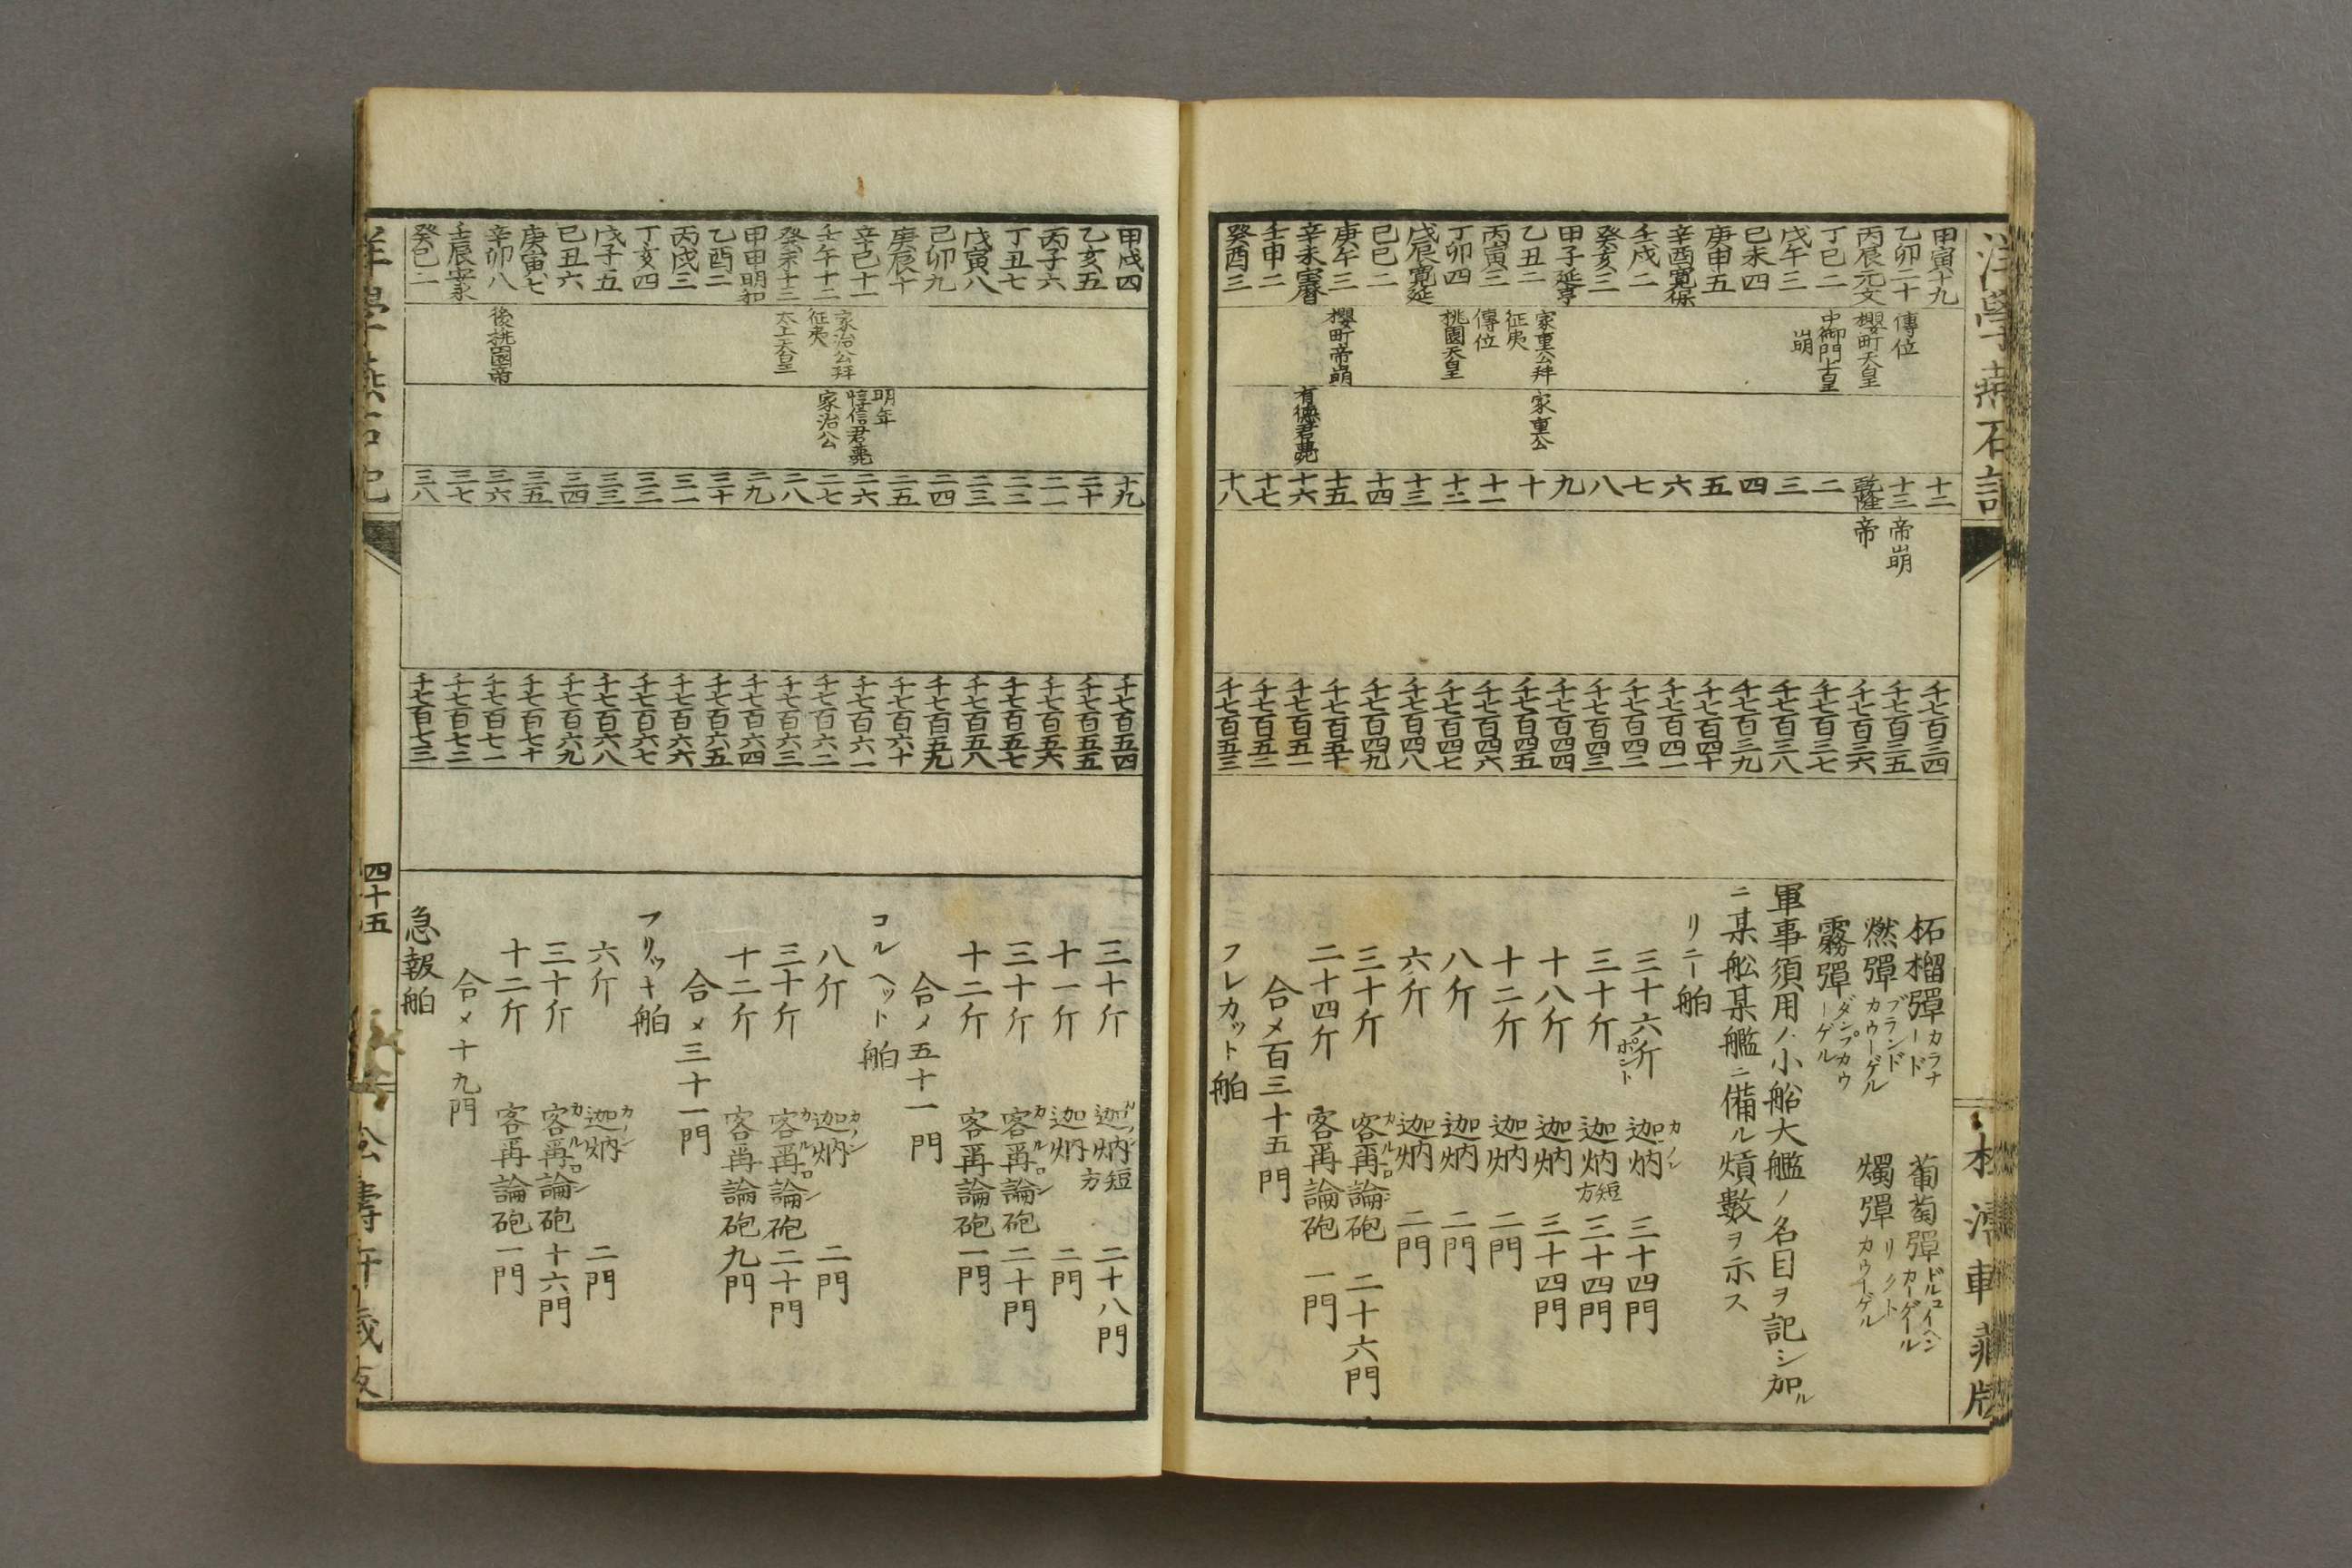 洋學燕石記
甲寅十九
乙卯二十
丙辰元文
丁巳二
戊午三
己未四
庚申五
辛酉寛保
壬戌二
癸亥三
甲子延享
乙丑二
丙寅三
丁卯四
戊辰寛延
己巳二
庚午三
辛未宝暦
壬申二
癸酉三
傳位
櫻町天皇
中御門上皇
崩
家重公拜
征夷
傳位
桃園天皇
櫻町帝崩
家重公
有徳君薨
十二
十三 帝崩
乾隆 帝
二
三
四
五
六
七
八
九
十
十一
十二
十三
十四
十五
十六
十七
十八
千七百三四
千七百三五
千七百三六
千七百三七
千七百三八
千七百三九
千七百四十
千七百四一
千七百四二
千七百四三
千七百四四
千七百四五
千七百四六
千七百四七
千七百四八
千七百四九
千七百五十
千七百五一
千七百五二
千七百五三
柘榴彈カラナード 葡萄彈ドルコイヘンカーゲール
燃彈ブランドカウーゲル 燭彈リクトカウーゲル
霧彈ダンプカウーゲル
軍事須用ノ小船大艦ノ名目ヲ記シ加ル
ニ某舩某艦ニ備ル熕數ヲ示ス
リニー舶
三十六斤ポント 迦炳カノン 三十四門
三十斤 迦炳短方 三十四門
十八斤 迦炳 三十四門
十二斤 迦炳 二門
八斤 迦炳 二門
六斤 迦炳 二門
三十斤 客再論砲カルロン 二十六門
二十四斤 客再論砲 一門
合メ百三十五門
フレカット舶
甲戌四
乙亥五
丙子六
丁丑七
戊寅八
己卯九
庚辰十
辛巳十一
壬午十二
癸未十三
甲申明和
乙酉二
丙戌三
丁亥四
戊子五
己丑六
庚寅七
辛卯八
壬辰安永
癸巳二
家治公拜
征夷
太上天皇
後桃園帝
明年
惇信君薨
家治公
十九
二十
二一
二二
二三
二四
二五
二六
二七
二八
二九
三十
三一
三二
三三
三四
三五
三六
三七
三八
千七百五四
千七百五五
千七百五六
千七百五七
千七百五八
千七百五九
千七百六十
千七百六一
千七百六二
千七百六三
千七百六四
千七百六五
千七百六六
千七百六七
千七百六八
千七百六九
千七百七十
千七百七一
千七百七二
千七百七三
三十斤 迦炳カノン短方 二十八門
十一斤 迦炳 二門
三十斤 客再論砲カルロン 二十門
十二斤 客再論砲 一門
合メ五十一門
コルヘット舶
八斤 迦炳カノン 二門
三十斤 客再論砲カルロン 二十門
十二斤 客再論砲 九門
合メ三十一門
フリッキ舶
六斤 迦炳カノン 二門
三十斤 客再論砲カルロン 十六門
十二斤 客再論砲 一門
合メ十九門
急報舶
四十五